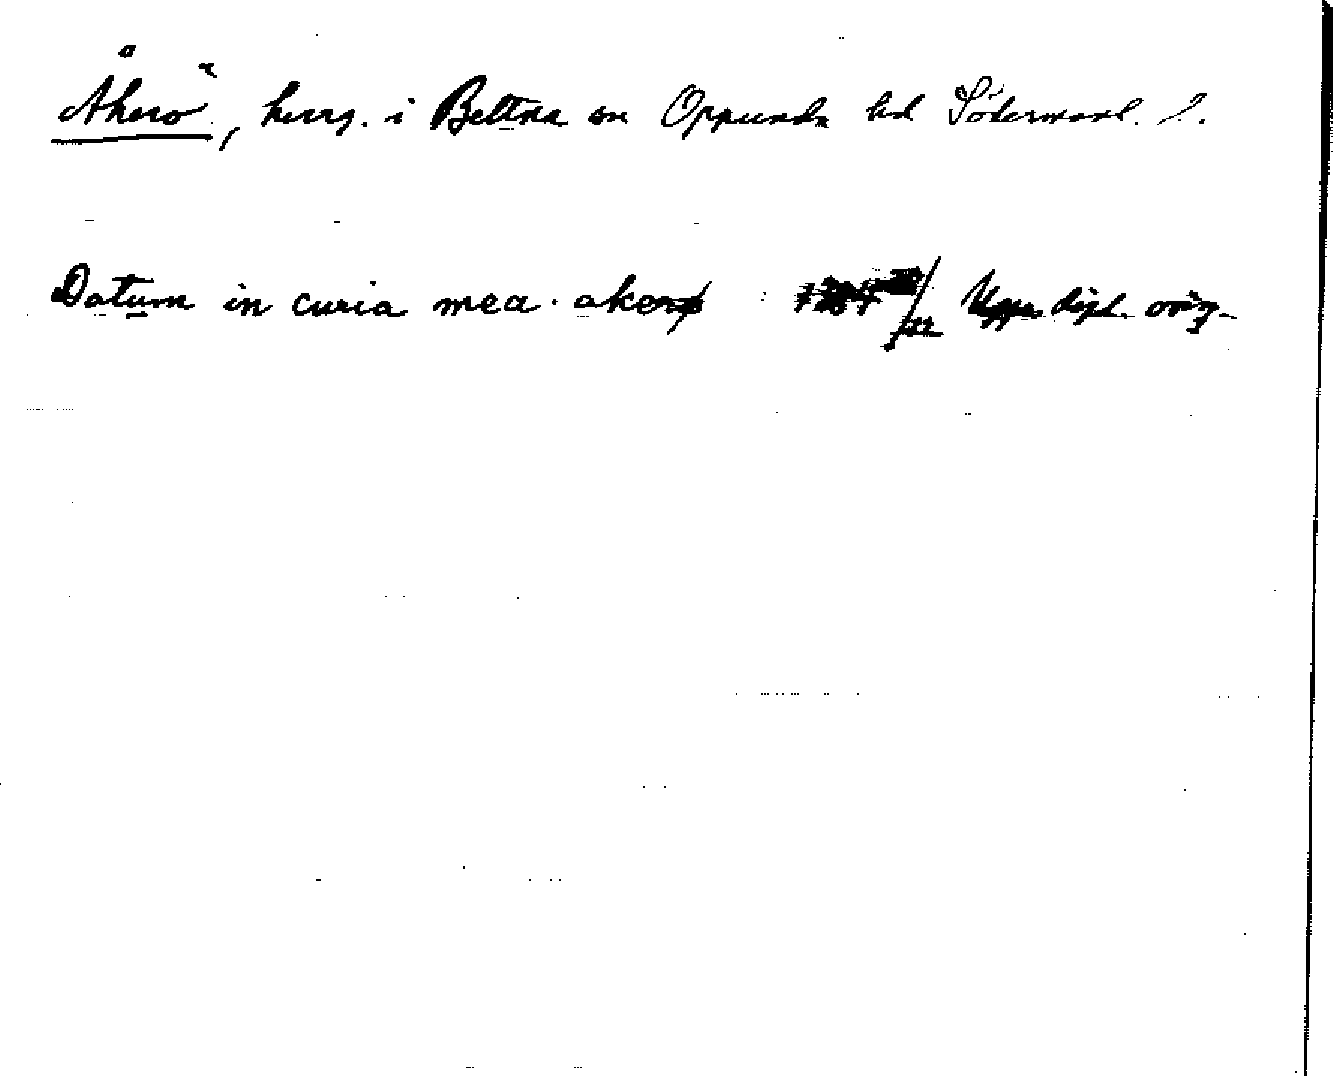 Åkerö, herrg. i Bettna sn Oppunda hd Södermanl. l.
Datum in curia mea akerø dipl. orig.